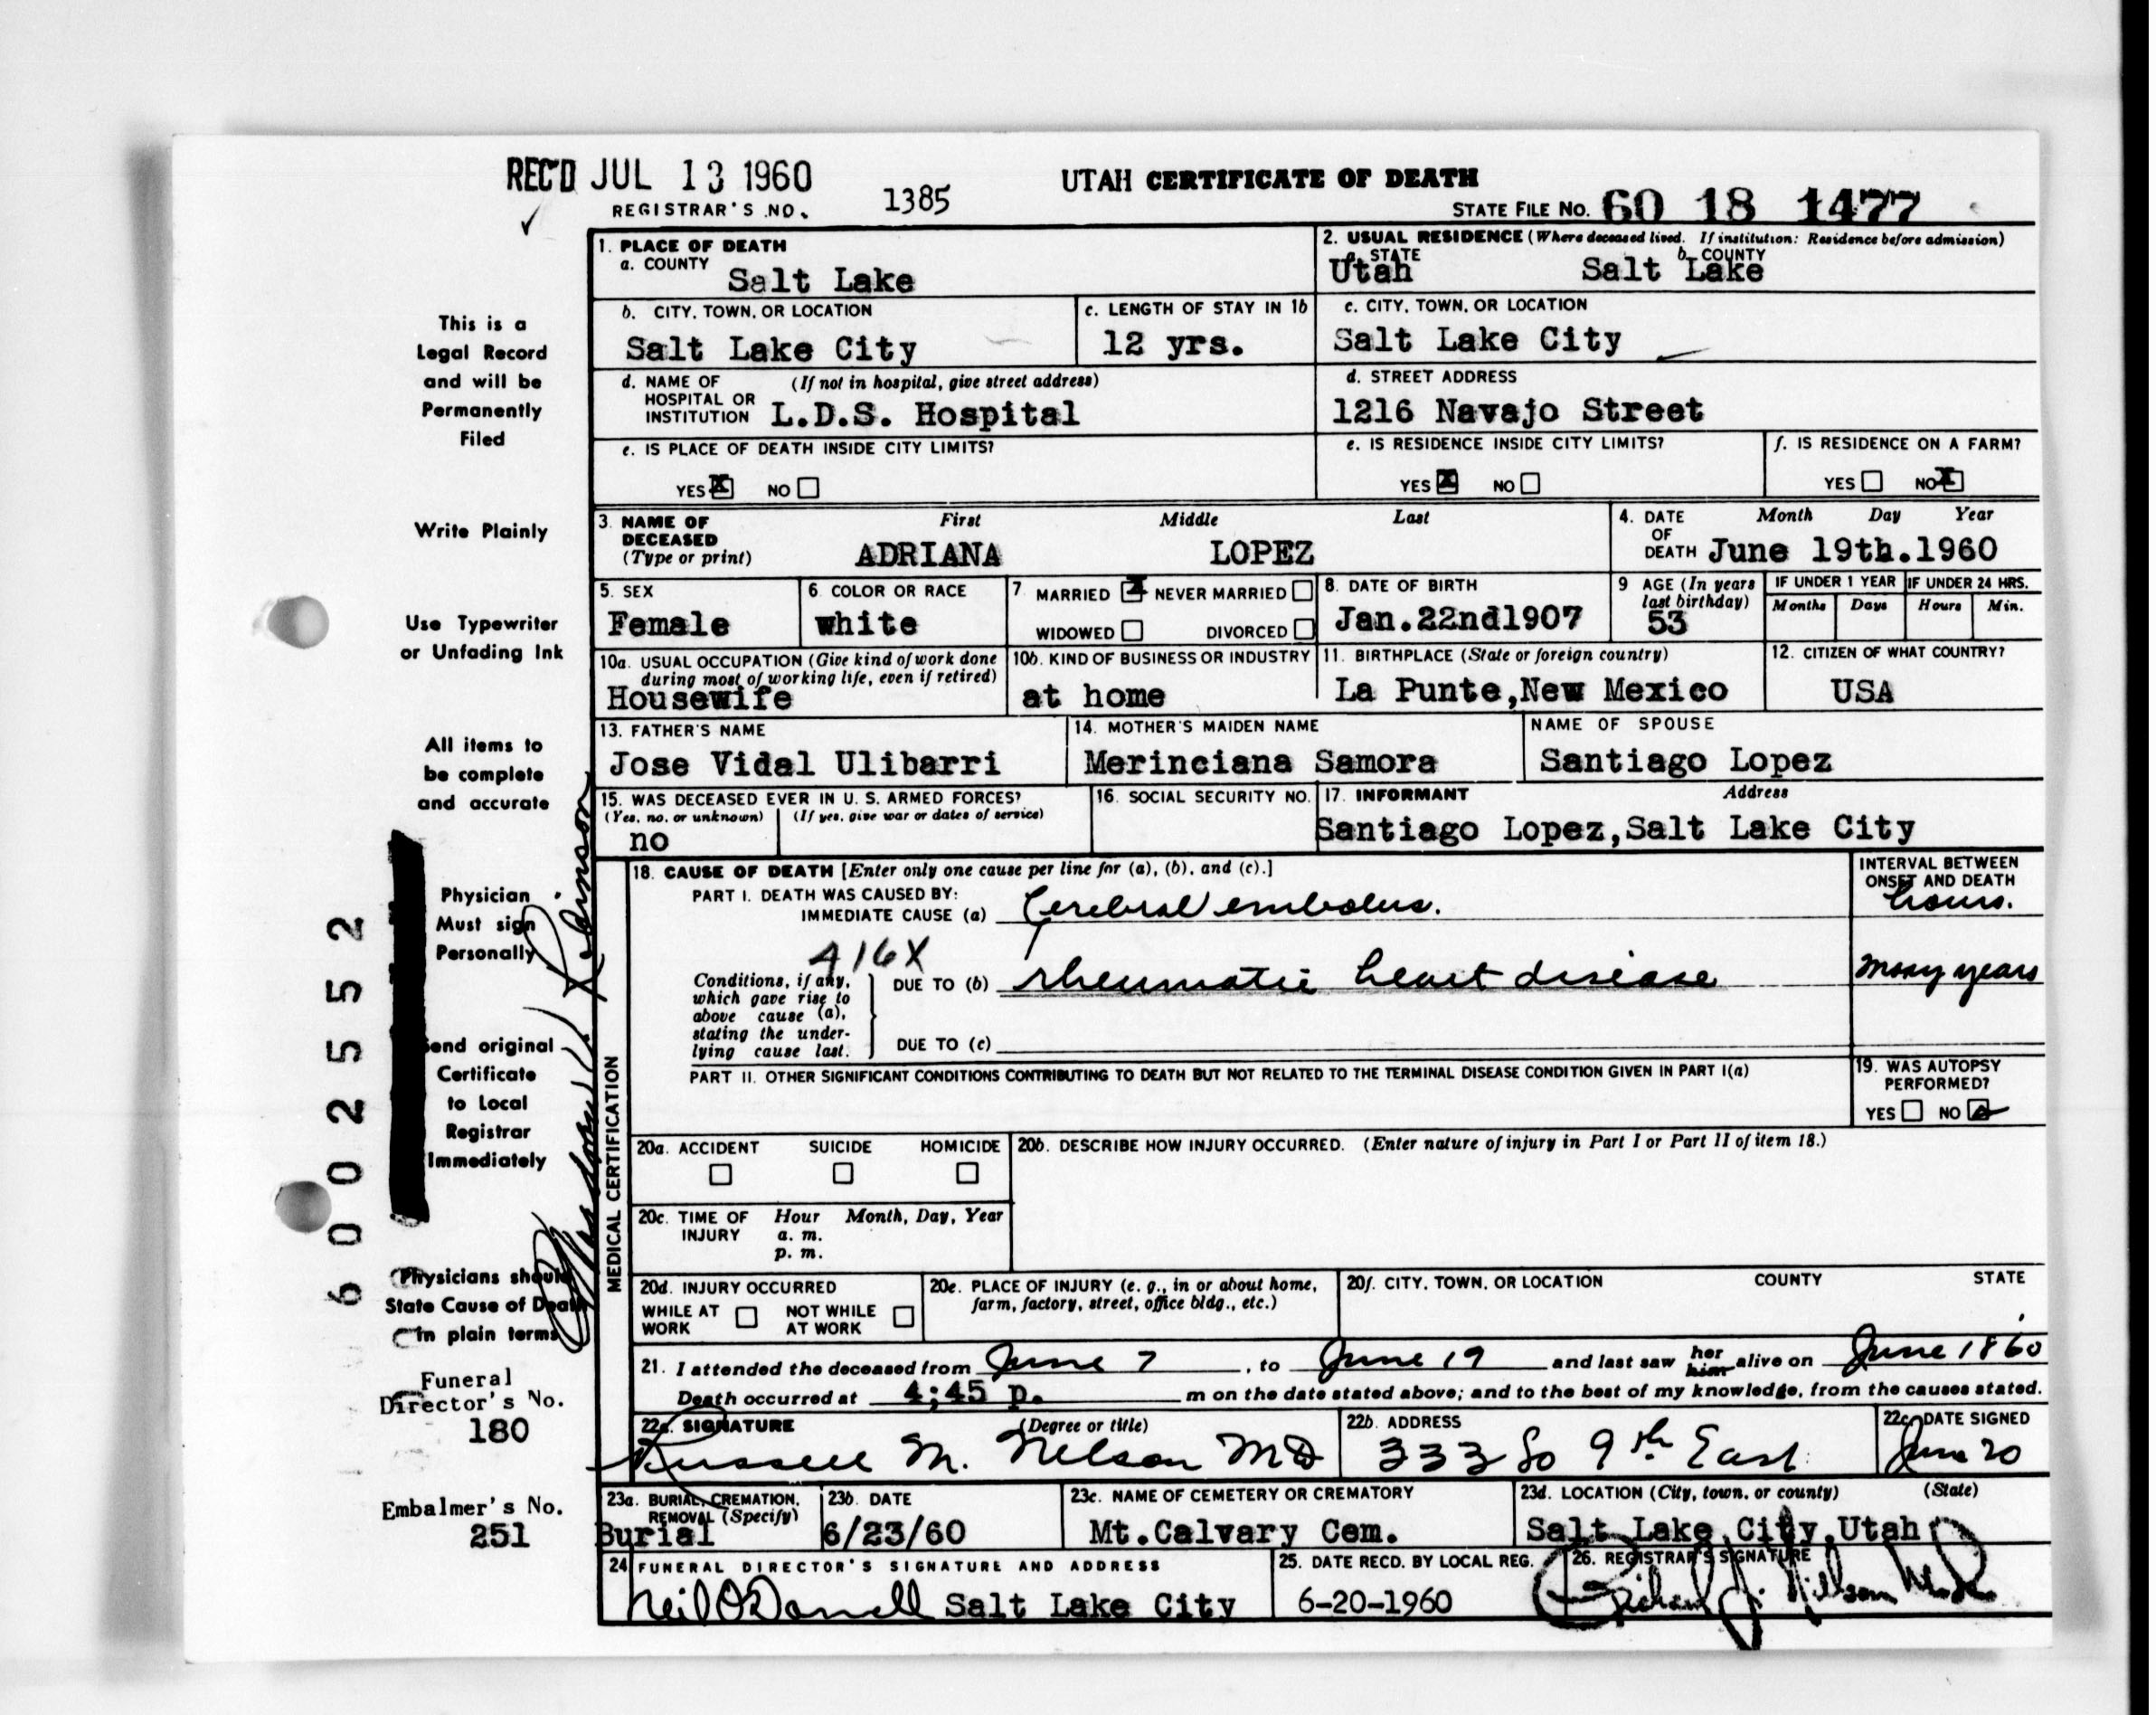 REC'D JUL 13 1960
REGISTRAR'S NO. 1385
UTAH CERTIFICATE OF DEATH
STATE FILE NO. 60 18 1477
This is a
Legal Record
and will be
Permanently
Filed
Write Plainly
Use Typewriter
or Unfading Ink
All items to
be complete
and accurate
Physician
Must sign
Personally
Send original
Certificate
to Local
Registrar
Immediately
Physicians should
State Cause of Death
in plain terms
Funeral
Director's No.
180
Embalmer's No.
251
6002552
Robinson
1. PLACE OF DEATH
a. COUNTY Salt Lake
2. USUAL RESIDENCE (Where deceased lived. If institution: Residence before admission)
a. STATE b. COUNTY
Utah Salt Lake
b. CITY, TOWN, OR LOCATION
Salt Lake City
c. LENGTH OF STAY IN 1b
12 yrs.
c. CITY, TOWN, OR LOCATION
Salt Lake City
d. NAME OF (If not in hospital, give street address)
HOSPITAL OR
INSTITUTION L.D.S. Hospital
d. STREET ADDRESS
1216 Navajo Street
e. IS PLACE OF DEATH INSIDE CITY LIMITS?
YES X NO
e. IS RESIDENCE INSIDE CITY LIMITS?
YES X NO
f. IS RESIDENCE ON A FARM?
YES NO X
3. NAME OF First Middle Last
DECEASED
(Type or print) ADRIANA LOPEZ
4. DATE Month Day Year
OF
DEATH June 19th.1960
5. SEX
Female
6. COLOR OR RACE
white
7. MARRIED X NEVER MARRIED
WIDOWED DIVORCED
8. DATE OF BIRTH
Jan.22nd1907
9 AGE (In years
last birthday)
53
IF UNDER 1 YEAR IF UNDER 24 HRS.
Months Days Hours Min.
10a. USUAL OCCUPATION (Give kind of work done
during most of working life, even if retired)
Housewife
10b. KIND OF BUSINESS OR INDUSTRY
at home
11. BIRTHPLACE (State or foreign country)
La Punte,New Mexico
12. CITIZEN OF WHAT COUNTRY?
USA
13. FATHER'S NAME
Jose Vidal Ulibarri
14. MOTHER'S MAIDEN NAME
Merinciana Samora
NAME OF SPOUSE
Santiago Lopez
15. WAS DECEASED EVER IN U. S. ARMED FORCES?
(Yes, no, or unknown) (If yes, give war or dates of service)
no
16. SOCIAL SECURITY NO.
17. INFORMANT Address
Santiago Lopez,Salt Lake City
MEDICAL CERTIFICATION
18. CAUSE OF DEATH [Enter only one cause per line for (a), (b), and (c).]
INTERVAL BETWEEN
ONSET AND DEATH
PART I. DEATH WAS CAUSED BY:
IMMEDIATE CAUSE (a) Cerebral embolus. hours.
416X
Conditions, if any,
which gave rise to
above cause (a),
stating the under-
lying cause last.
DUE TO (b) rheumatic heart disease many years
DUE TO (c)
PART II. OTHER SIGNIFICANT CONDITIONS CONTRIBUTING TO DEATH BUT NOT RELATED TO THE TERMINAL DISEASE CONDITION GIVEN IN PART I(a)
19. WAS AUTOPSY
PERFORMED?
YES NO
20a. ACCIDENT SUICIDE HOMICIDE
20b. DESCRIBE HOW INJURY OCCURRED. (Enter nature of injury in Part I or Part II of item 18.)
20c. TIME OF Hour Month, Day, Year
INJURY a. m.
p. m.
20d. INJURY OCCURRED
WHILE AT NOT WHILE
WORK AT WORK
20e. PLACE OF INJURY (e. g., in or about home,
farm, factory, street, office bldg., etc.)
20f. CITY, TOWN, OR LOCATION COUNTY STATE
21. I attended the deceased from June 7, to June 19 and last saw her him alive on June 18 60
Death occurred at 4;45 p. m on the date stated above; and to the best of my knowledge, from the causes stated.
22a. SIGNATURE (Degree or title)
Russell M. Nelson MD
22b. ADDRESS
333 So 9th East
22c. DATE SIGNED
June 20
23a. BURIAL, CREMATION,
REMOVAL (Specify)
Burial
23b. DATE
6/23/60
23c. NAME OF CEMETERY OR CREMATORY
Mt.Calvary Cem.
23d. LOCATION (City, town, or county) (State)
Salt Lake City,Utah
24 FUNERAL DIRECTOR'S SIGNATURE AND ADDRESS
Neil O'Donnell Salt Lake City
25. DATE RECD. BY LOCAL REG.
6-20-1960
26. REGISTRAR'S SIGNATURE